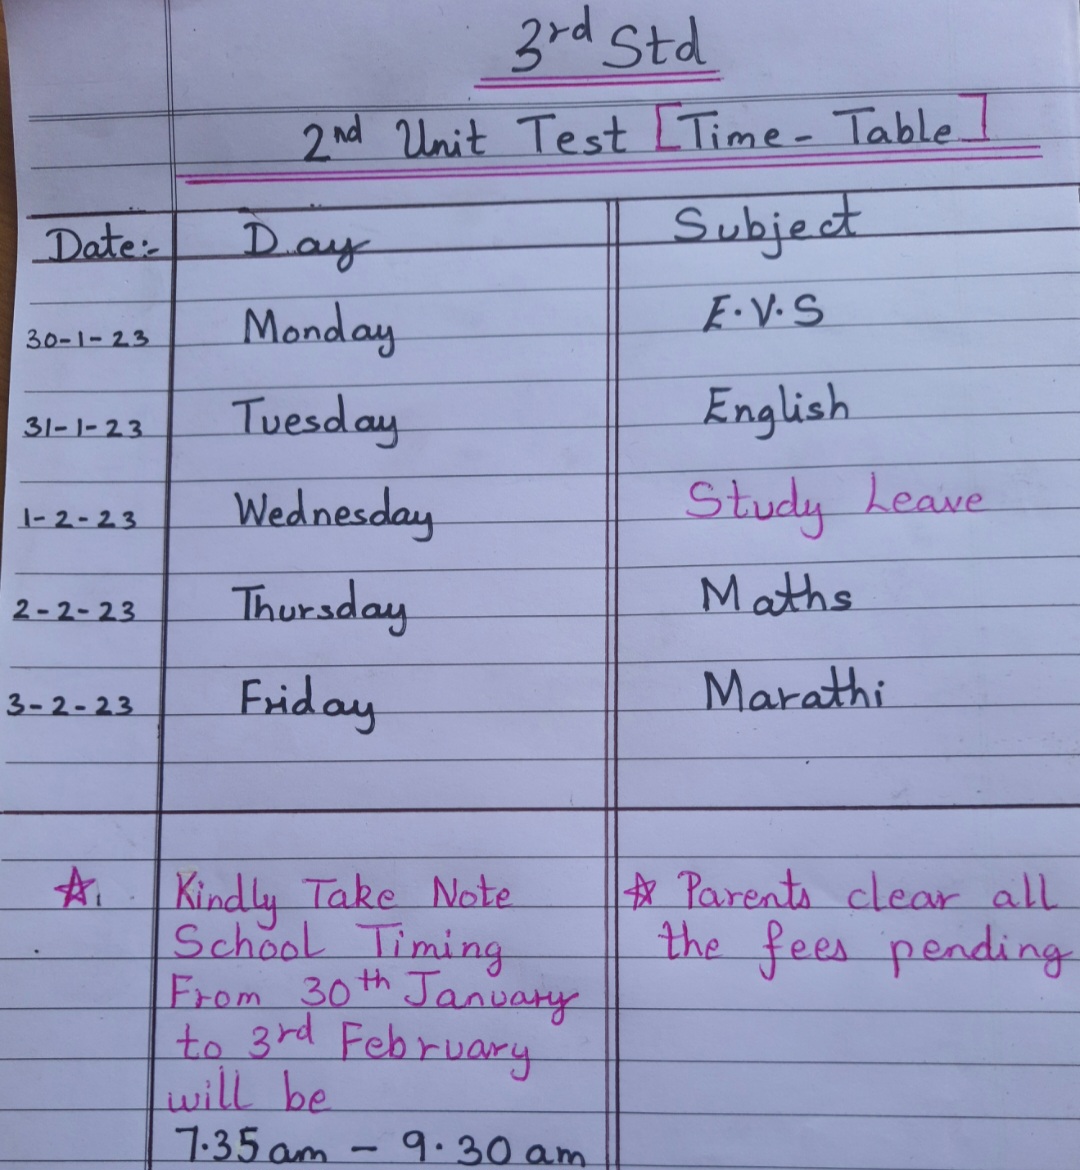 3rd Std
2nd Unit Test [Time-Table]
Date:- Day Subject
30-1-23 Monday E.V.S
31-1-23 Tuesday English
1-2-23 Wednesday Study Leave
2-2-23 Thursday Maths
3-2-23 Friday Marathi
☆. Kindly Take Note
School Timing
From 30th January
to 3rd February
will be
7.35am - 9.30am
☆ Parents clear all
the fees pending